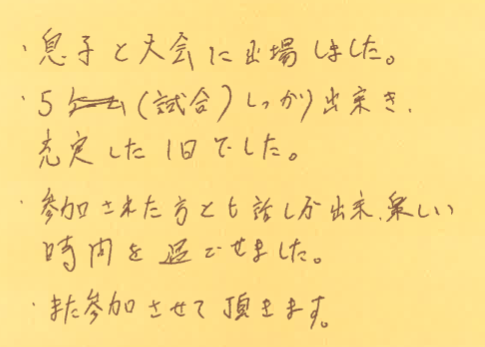 ・息子と大会に出場しました。
・5ゲーム(試合)しっかり出来き、
充実した1日でした。
・参加された方とも話しが出来、楽しい
時間を過ごせました。
・また参加させて頂きます。